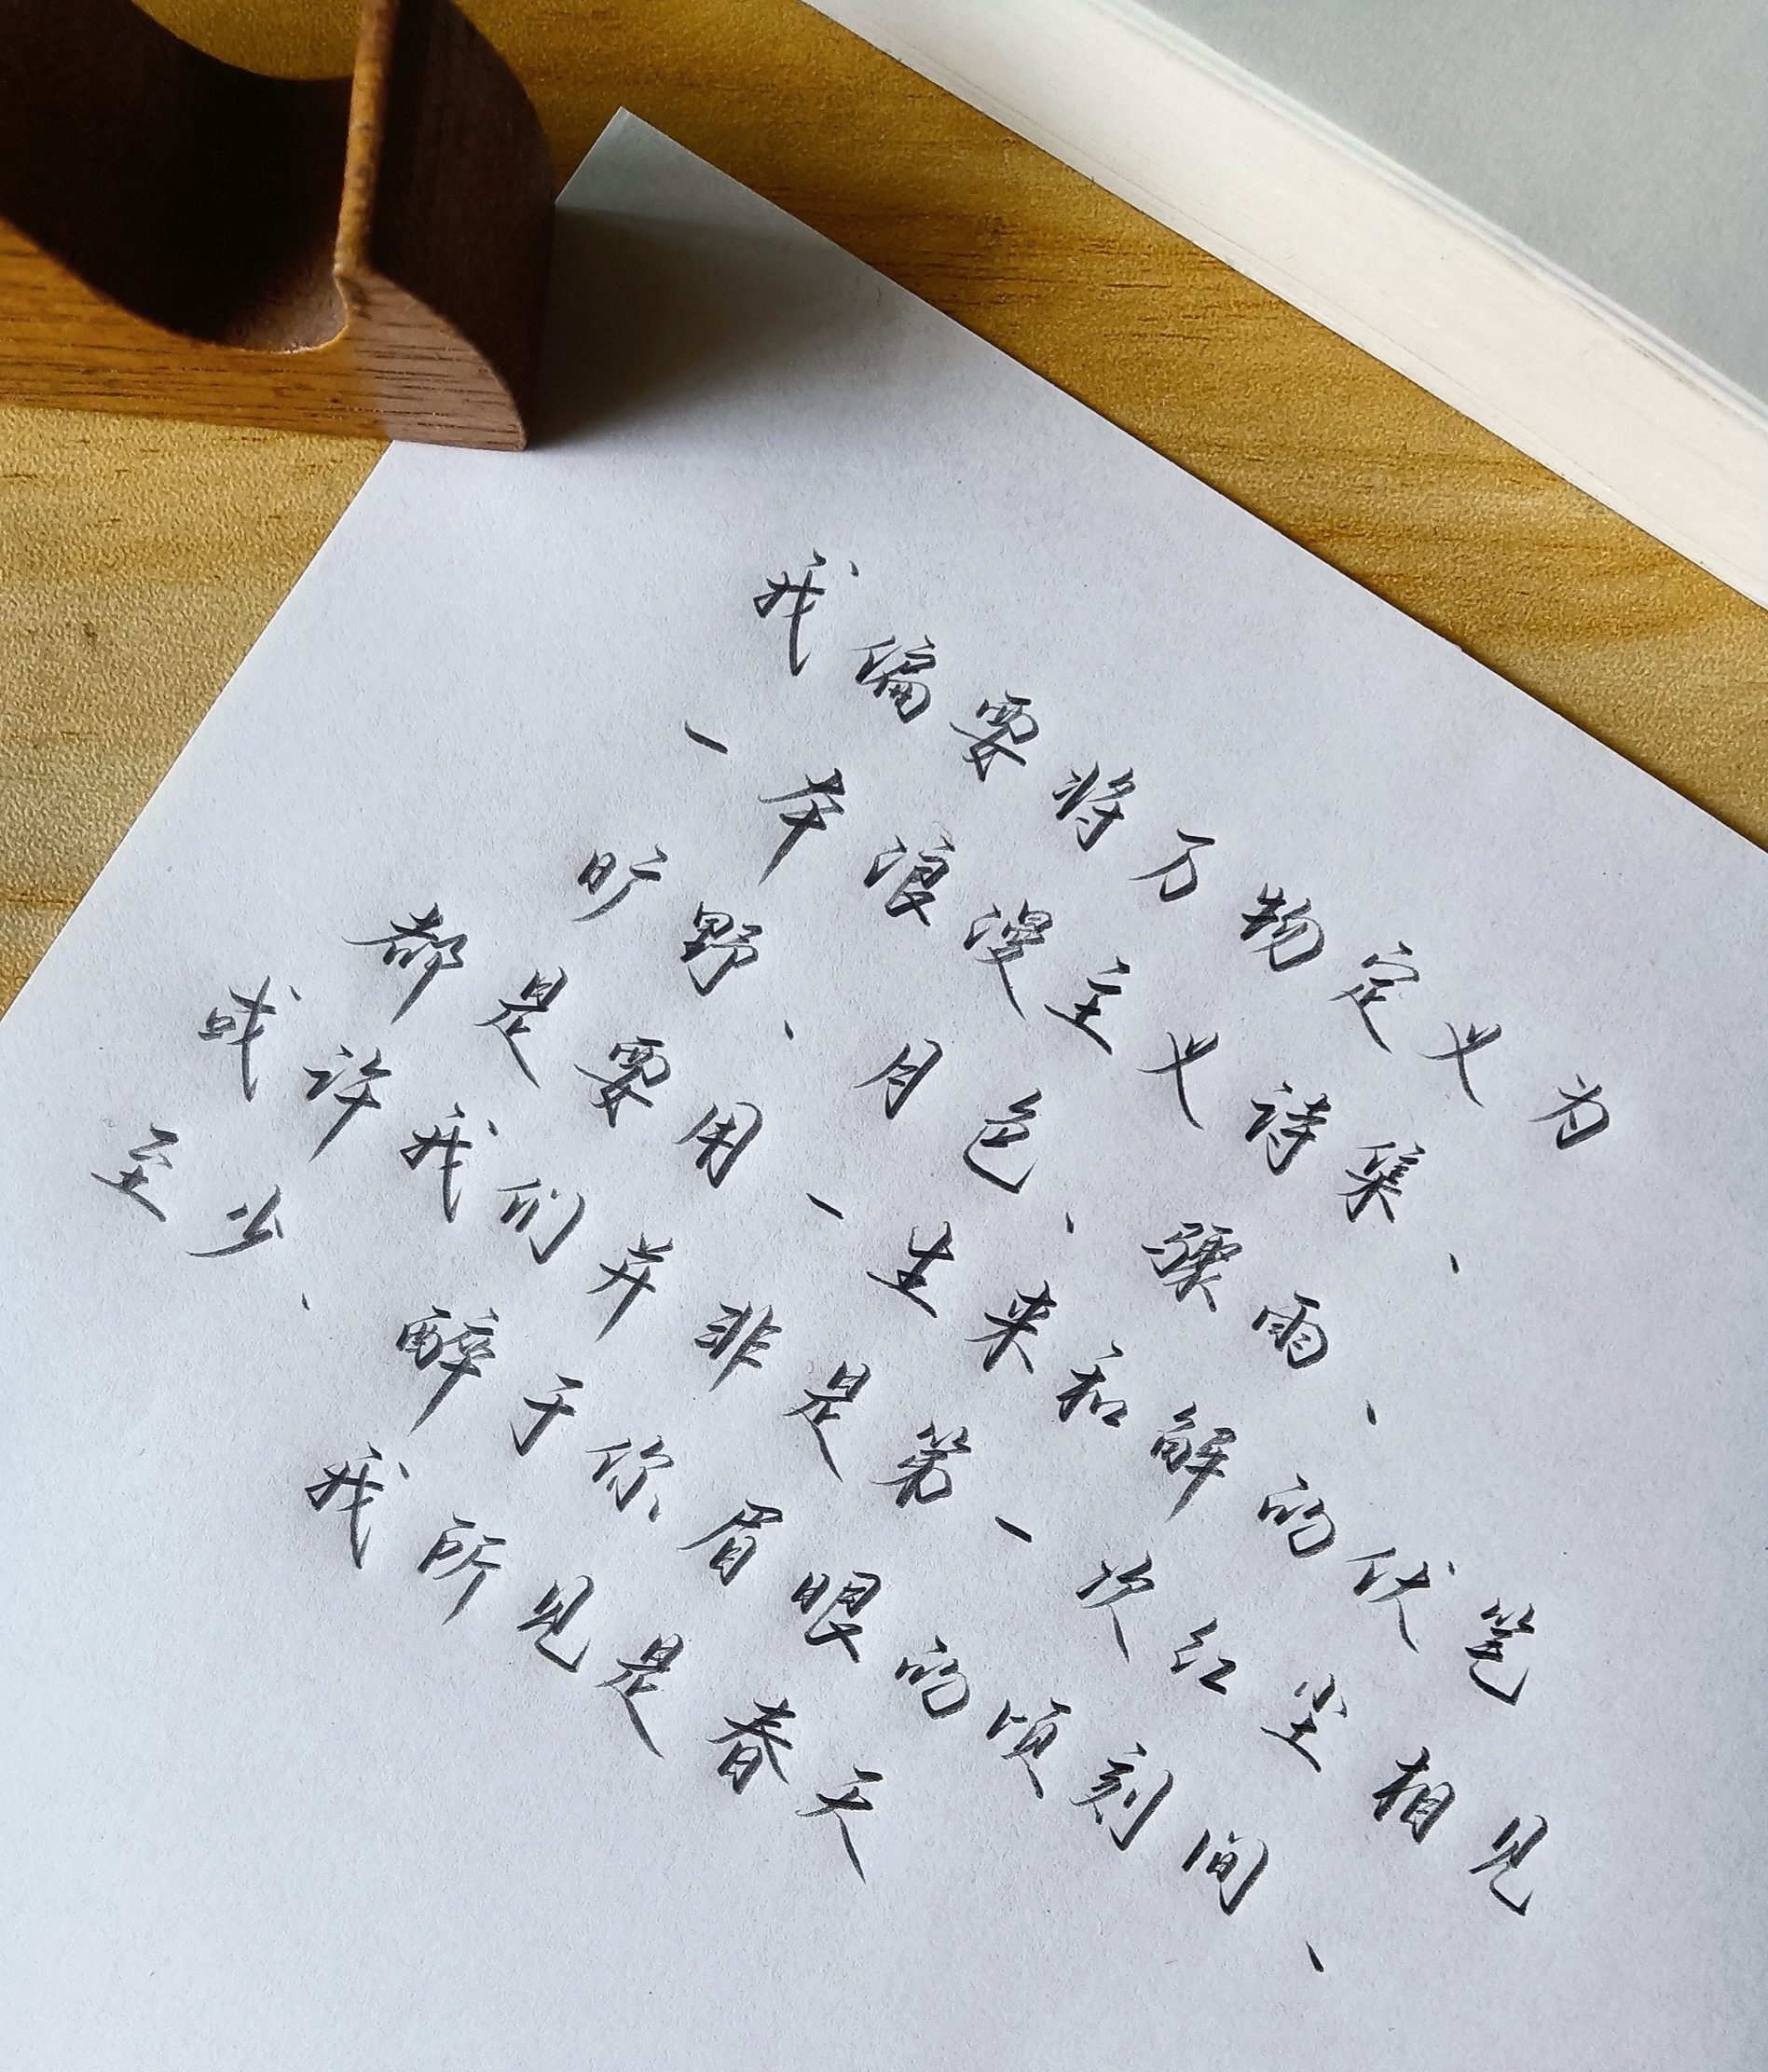 我偏要将万物定义为
一本浪漫主义诗集、
旷野、月色、骤雨、
都是要用一生来和解的伏笔
或许我们并非是第一次红尘相见
至少、醉于你眉眼的顷刻间、
我所见是春天